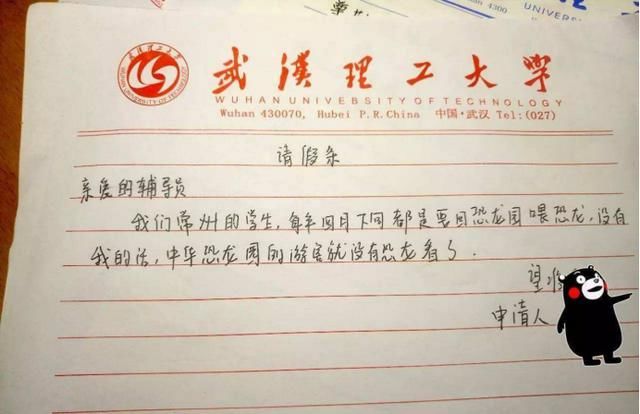 武汉理工大学
WUHAN UNIVERSITY OF TECHNOLOGY
Wuhan 430070, Hubei P.R.China 中国·武汉 Tel:(027)
请假条
亲爱的辅导员
我们常州的学生,每年四月下旬都是要回恐龙园喂恐龙,没有
我的话,中华恐龙园的游客就没有恐龙看了.
望
申请人
UNIVER